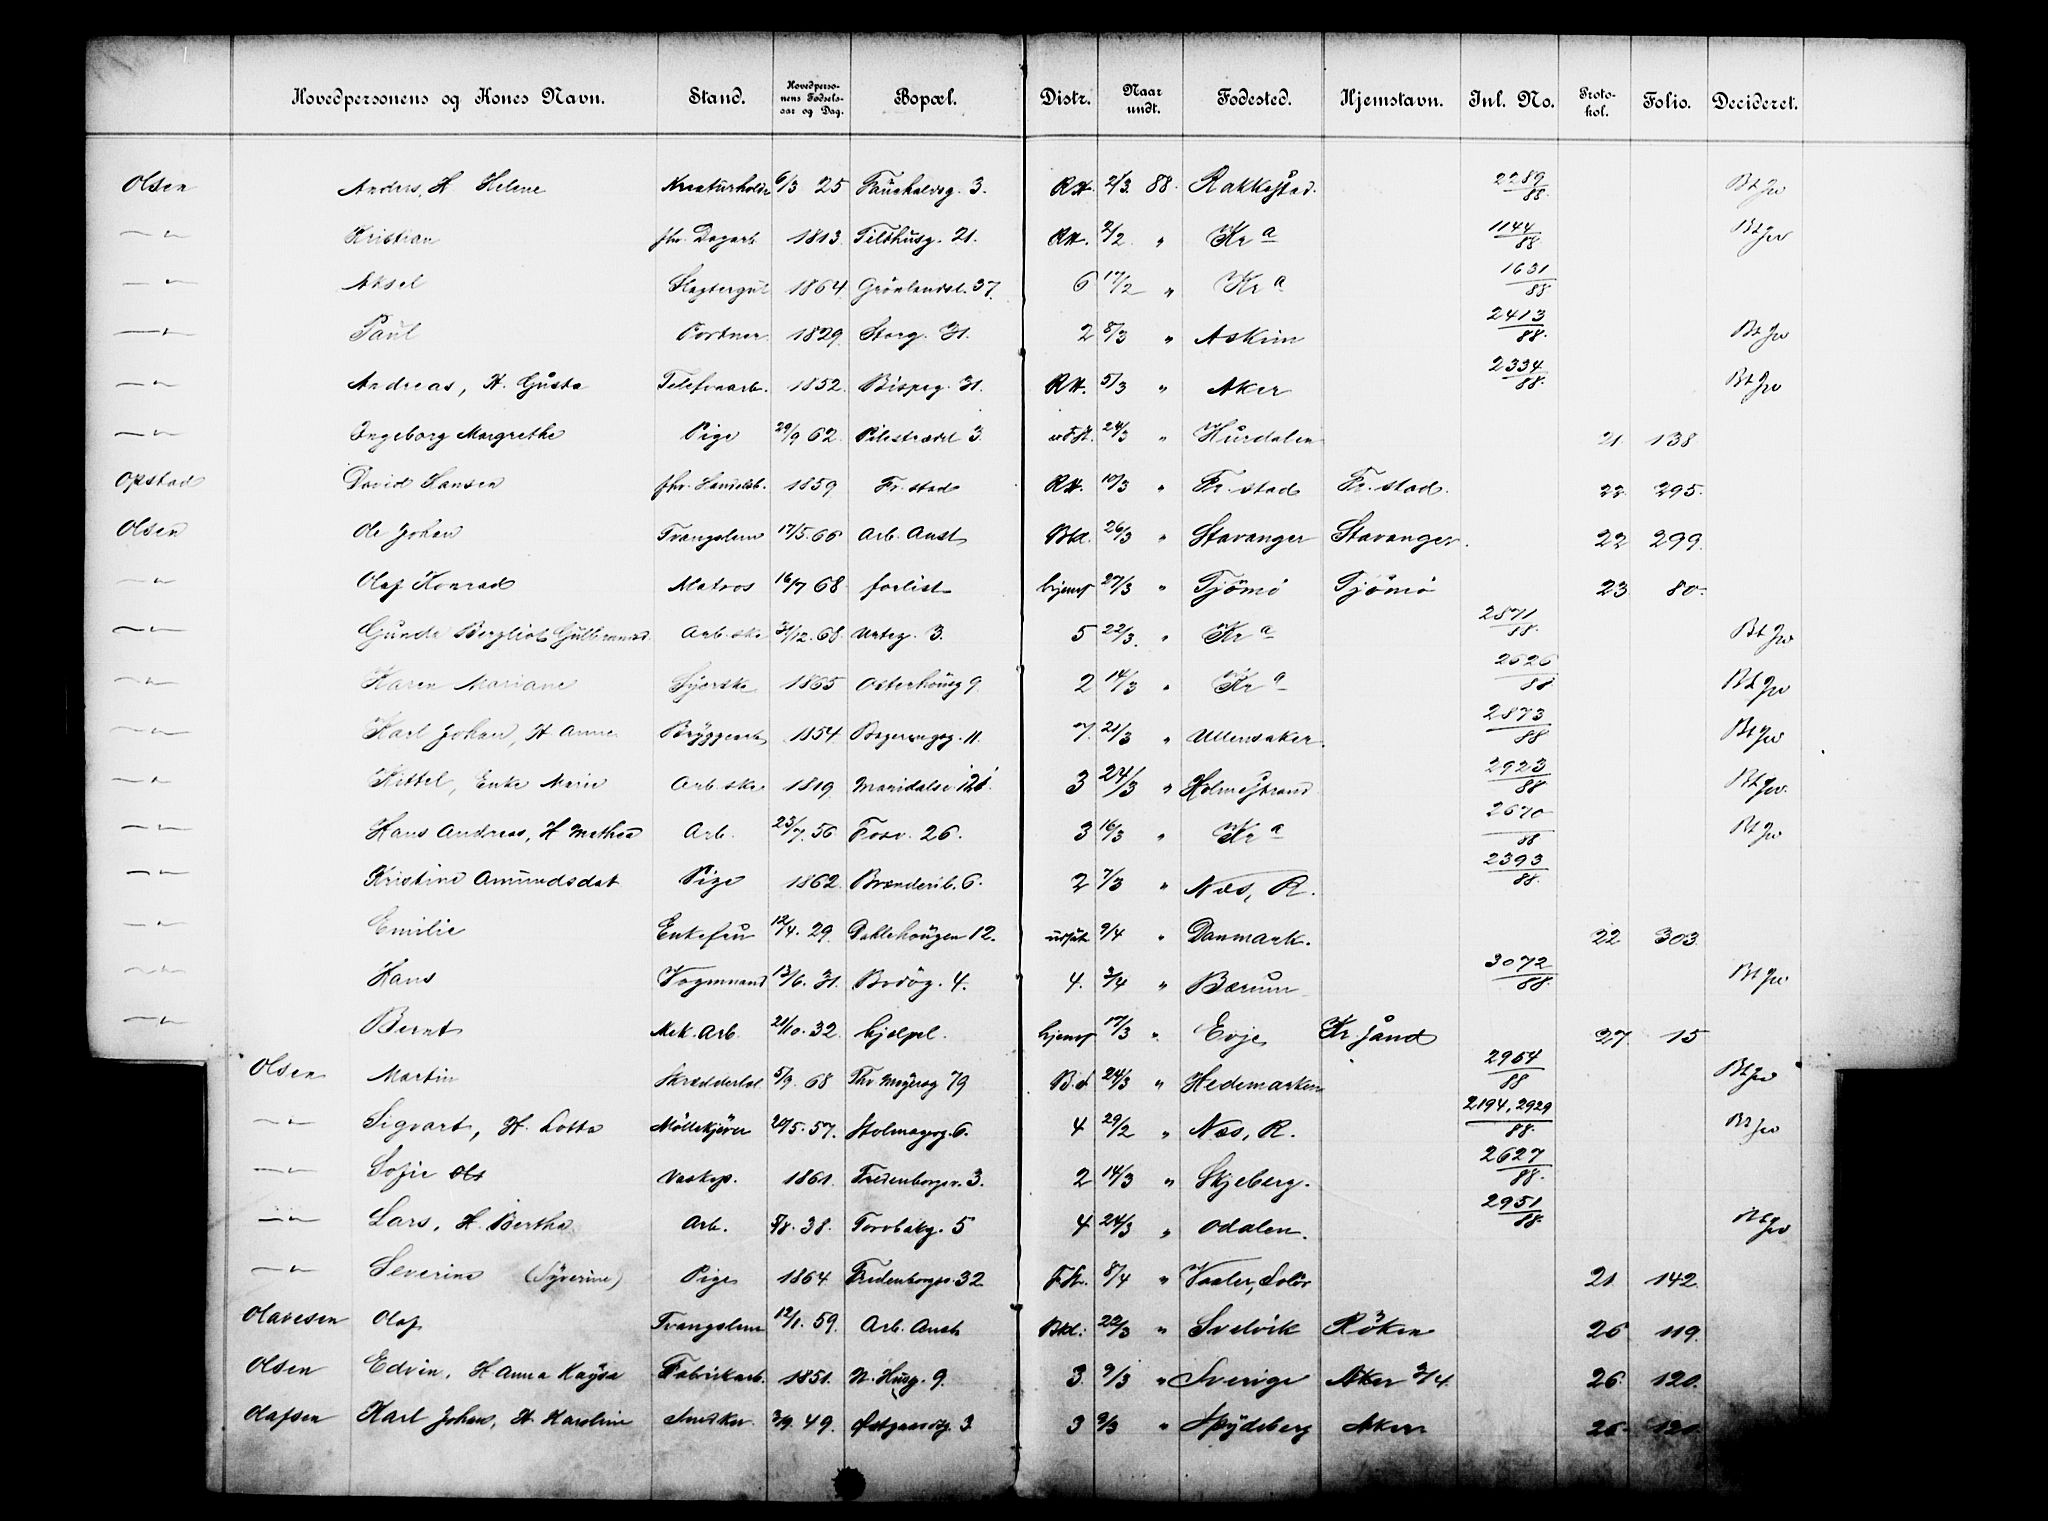 Hovedpersonens og Kones Navn. Stand. Hovedpersonens Fødselsaar og Dag. Bopæl. Distr. Naar undt. Fødested. Hjemstavn. Inl. No. Protokol. Folio. Decideret.
Olsen Anders, H Helene Kreaturholder 6/3 25 3. RH. 2/3 88. Rakkestad. 2289/88. Bt Jw
—"— Kristian fhv. Dagarb. 1813. Tilthusg. 21. RH. 2/2 " Kr a 1144/88. Bt Jw
—"— Aksel Slagtergut 1864. Grønlandsl. 37. 6 17/2 " Kr a 1631/88
—"— Paul Portner 1829. Storg. 31. 2 8/3 " Askim 2413/88. Bt Jw
—"— Andreas, H. Gusta Telefonarb. 1852. Bispeg. 31. RH. 5/3 " Aker 2334/88. Bt Jw
—"— Ingeborg Margrethe Pige 29/9 62. Pilestrædet 3. 24/3 " Hurdalen 21. 138
Opstad David Hansen fhv. Handelsb. 1859 Fr. stad RH. 10/3 " Fr. stad Fr. stad. 22. 295.
Olsen Ole Johan Tvangslem 17/5. 66 Arb. Anst. Bkl. 26/3 " Stavanger Stavanger. 22 299.
—"— Olaf Konrad Matros 16/7 68. forlist hjemsf 27/3 " Tjømø Tjømø 23 80.
—"— Gunda Bergliot Gulbrands. Arb. ske 31/12. 68. Urteg. 3. 5 22/3. " Kr a 2871/88. Bt Jw
—"— Karen Mariane Syerske 1865 Osterhausg 9 2 14/3 " Kr a 2626/88 Bt Jw
—"— Karl Johan, H Anne Bryggearb 1854. 11. 7. 21/3 " Ullensaker. 2873/88 Bt Jw
—"— Kittel, Enke Marie Arb. ske 1819 Maridalsv. 121. 3 24/3 " Holmestrand 2923/88 Bt Jw.
—"— Hans Andreas, H Mathea Arb. 23/7. 56 Fosv. 26. 3 16/3 " Kr a 2670/88 Bt Jw
—"— Kristine Amundsdat Pige 1862. Brænderib. 6. 2 7/3 " Næs, R. 2393/88.
—"— Emilie Enkefru 12/4. 29. Dahlehaugen 12. udsat 9/4 " Danmark. 22 303.
—"— Hans Vognmand 13/6. 31. Bodøg. 4. 4. 3/4 " Bærum 3072/88. Bt Jw
—"— Bernt Mek. Arb. 21/10. 32. hjelpel. hjemsf 17/3 " Evje Kr. sand 27 15
Olsen Martin Skrædderlæ. 5/9. 68 Thv Meyersg 79 B.d 24/3 " Hedemarken 2964/88 Bt Jw
—"— Sigvart, H. Lotta Møllekjører 20/5. 57. Holmegsg. 6. 4 29/2 " Næs, R. 2194, 2929/88. Bt Jw
—"— Sofie Vaskep. 1861. Fredenborgv. 3. 2 14/3 " Skjeberg. 2627/88.
—"— Lars, H. Bertha Arb. 5/8. 38. Torvbakg. 5 4 24/3 " Odalen. 2951/88. Bt Jw
—"— Severine (Syverine) Pige 1864 Fredenborgv. 32 8/4 " Vaaler, Solør 21. 142.
Olavesen Olaf Tvangslem 12/1. 59. Arb. Anst. Bkl. 22/3 " Svelvik Røken 26 119.
Olsen Edvin, H Anna Kaysa Fabrikarb. 1851. N. Husg. 9. 3. 9/3 " Sverige Aker 3/4. 26. 120.
Olafsen Karl Johan, H. Karoline Snedker 3/9. 49. Østgaardsg. 3 3 9/3 " Spydeberg Aker 26. 120.